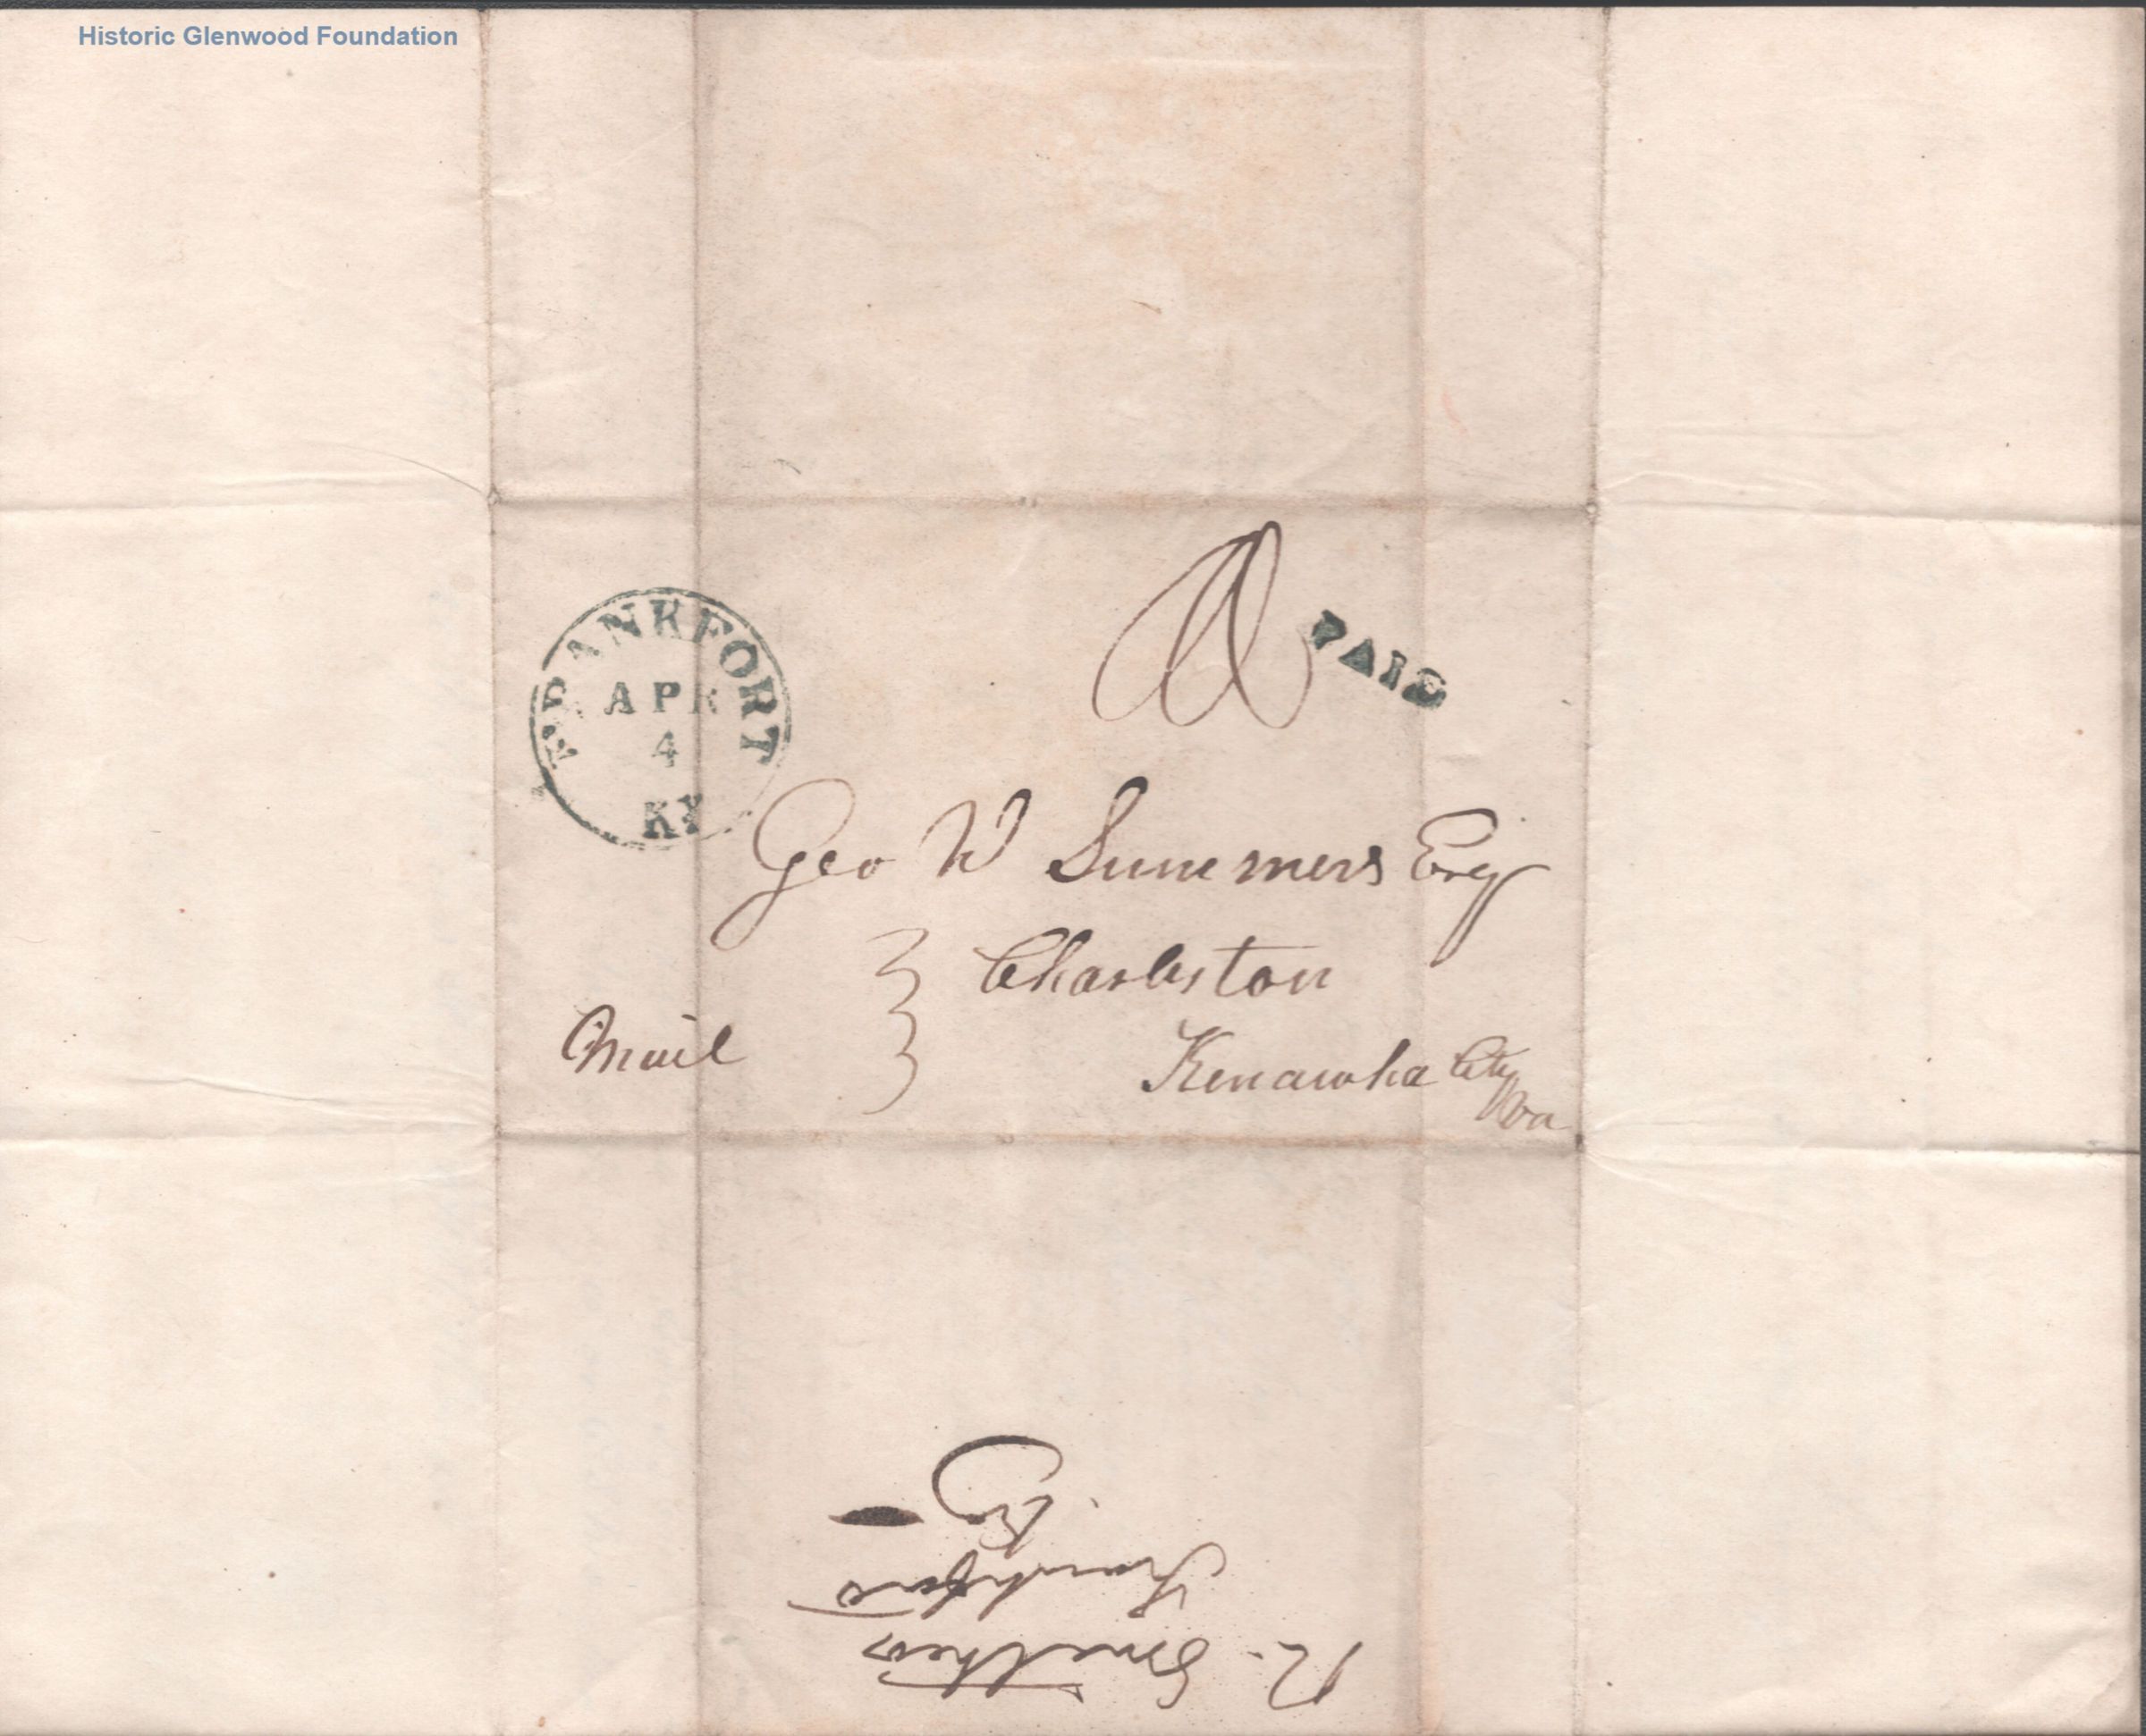 Historic Glenwood Foundation
PAID
FRANKFORT
APR
4
KY
Geo W Summers Esq
Charleston
Mail
Kenawha Cty
Va
R.
Frankfort
Ky